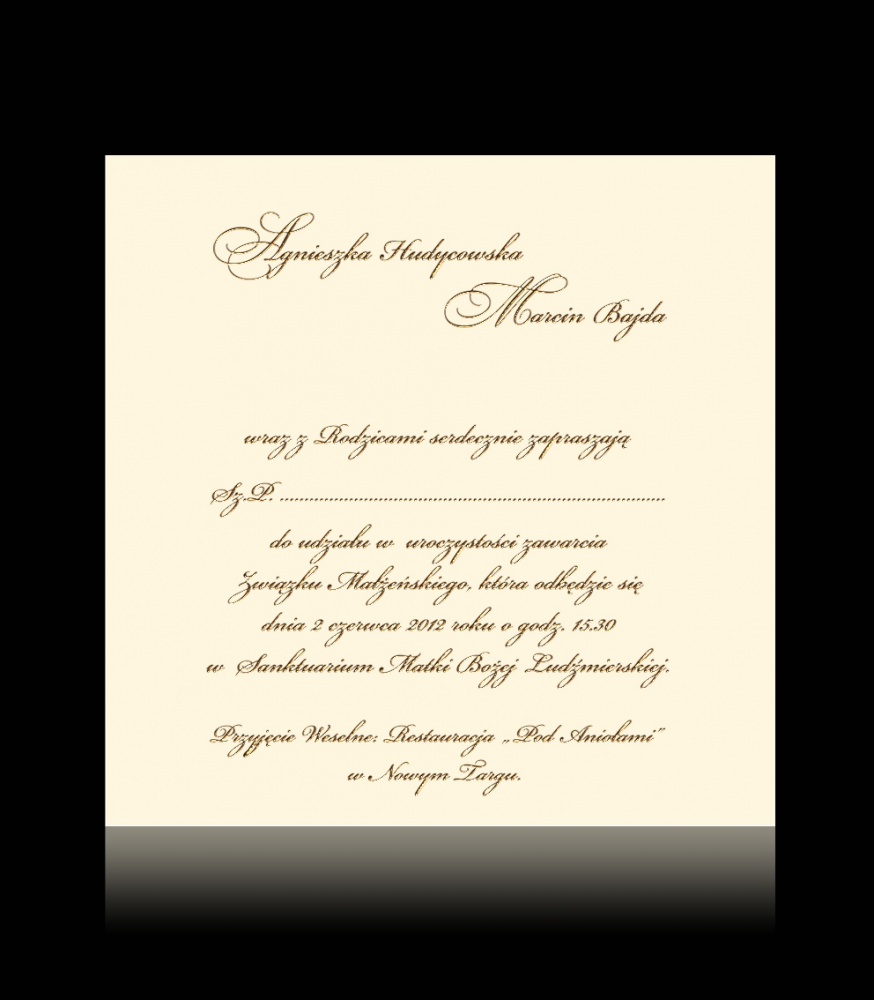 Agnieszka Hudycowska
Marcin Bajda
wraz z Rodzicami serdecznie zapraszają
Sz.P. ................................................................................
do udziału w uroczystości zawarcia
Związku Małżeńskiego, która odbędzie się
dnia 2 czerwca 2012 roku o godz. 15.30
w Sanktuarium Matki Bożej Ludźmierskiej.
Przyjęcie Weselne: Restauracja „Pod Aniołami”
w Nowym Targu.